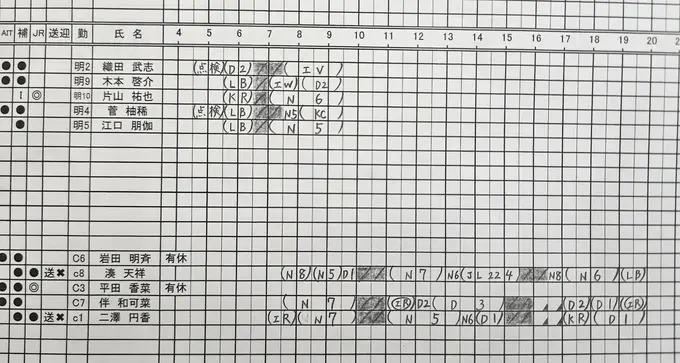 AIT 補 JR 送迎 勤 氏 名 4 5 6 7 8 9 10 11 12 13 14 15 16 17 18 19 20 2
● ● 明2 織田 武志 (点検)(D2) (IV)
● ● 明9 木本 啓介 (LB) (IW)(D2)
I ◎ 明10 片山 祐也 (KR) (N6)
● ● 明4 菅 柚稀 (点検)(LB) N5(KC)
● 明5 江口 朋伽 (LB) (N5)
● ● C6 岩田 明斉 有休
● ● 送✖ c8 湊 天祥 (N8)(N5)D1 (N7) N6(JL224) N8(N6)(LB)
● ◎ C3 平田 香菜 有休
● ● C7 伴 和可菜 (N7) (IB)D2(D3) (D2)(D1)(IB)
● ● 送✖ c1 二澤 円香 (IR)(N7) (N5)N6(D1) (KR)(D1)